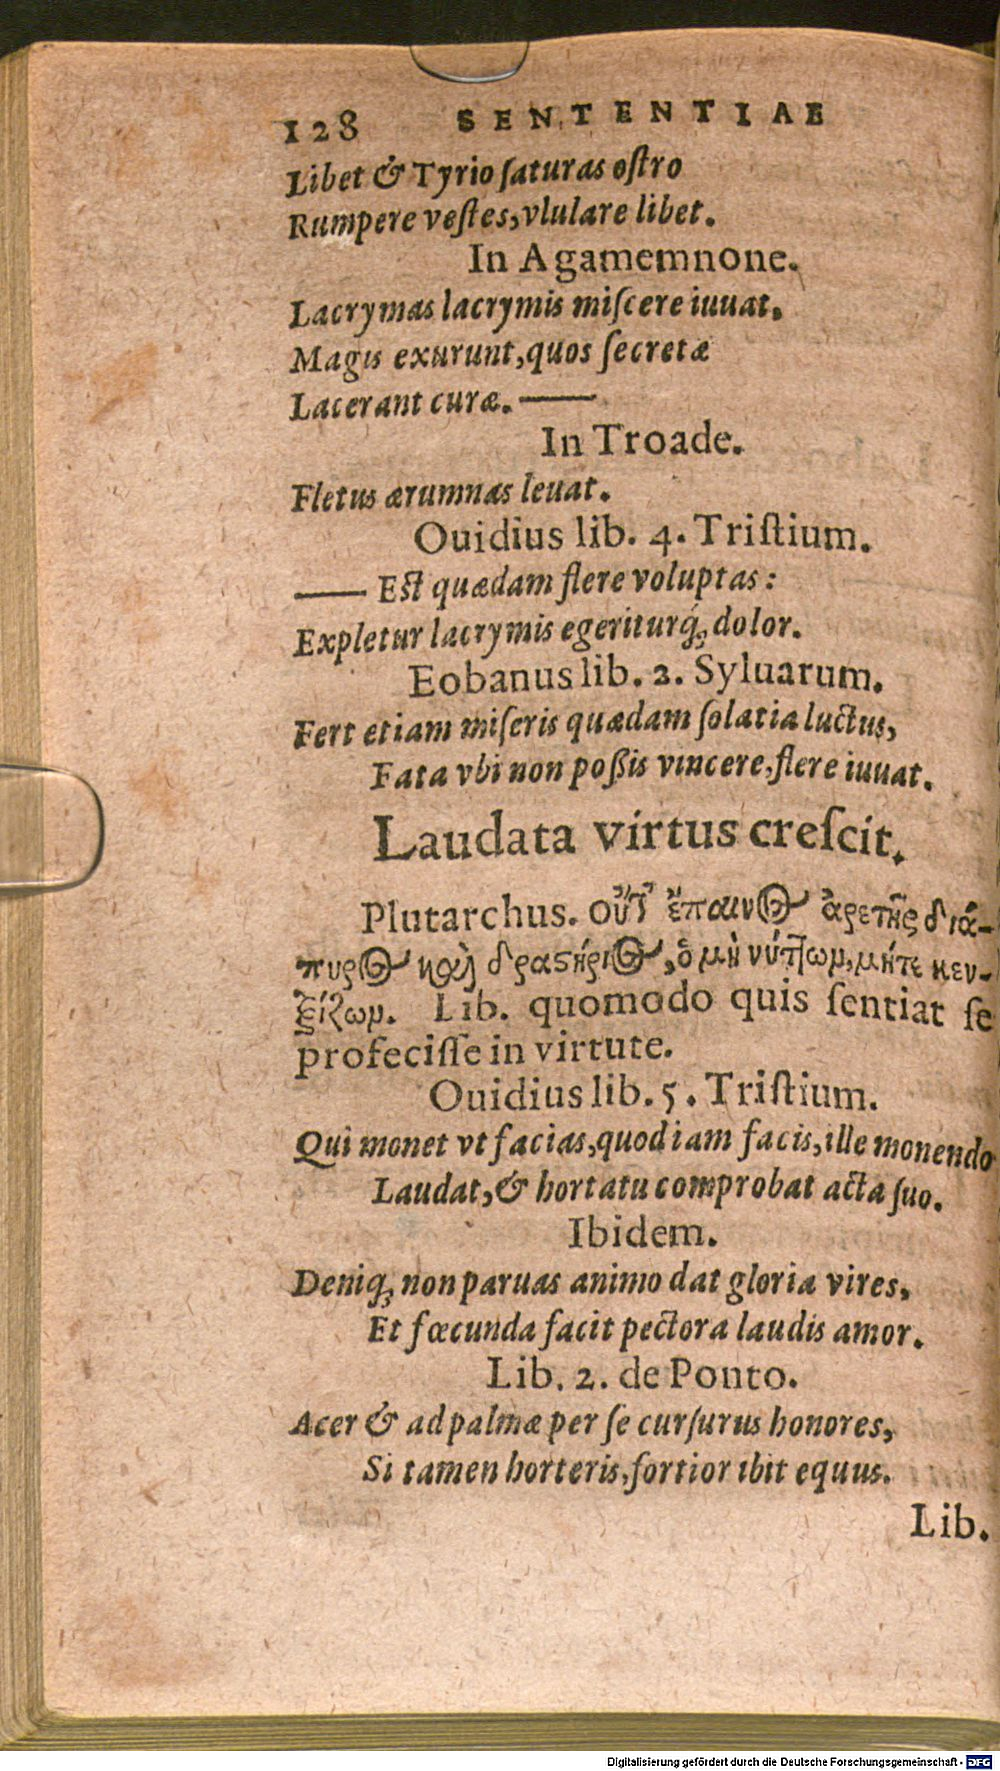 128 SENTENTIAE
Libet & Tyrio ſaturas oſtro
Rumpere veſtes, vlulare libet.
In Agamemnone.
Lacrymas lacrymis miſcere iuuat.
Magis exurunt, quos ſecretæ
Lacerant curæ. ——
In Troade.
Fletus ærumnas leuat.
Ouidius lib. 4. Triſtium.
—— Eſt quædam flere voluptas:
Expletur lacrymis egeriturq́; dolor.
Eobanus lib. 2. Syluarum.
Fert etiam miſeris quædam ſolatia luctus,
Fata vbi non poßis vincere, flere iuuat.
Laudata virtus creſcit.
Plutarchus. ἔπαινος ἀρετῆς διά-
πυρος καὶ δραστήριος, ὁ μὴ νύττων, μήτε κεν-
Lib. quomodo quis ſentiat ſe
profeciſſe in virtute.
Ouidius lib. 5. Triſtium.
Qui monet vt facias, quod iam facis, ille monendo
Laudat, & hortatu comprobat acta ſuo.
Ibidem.
Deniq; non paruas animo dat gloria vires,
Et fœcunda facit pectora laudis amor.
Lib. 2. de Ponto.
Acer & ad palmæ per ſe curſurus honores,
Si tamen horteris, fortior ibit equus.
Lib.
Digitalisierung gefördert durch die Deutsche Forschungsgemeinschaft - DFG